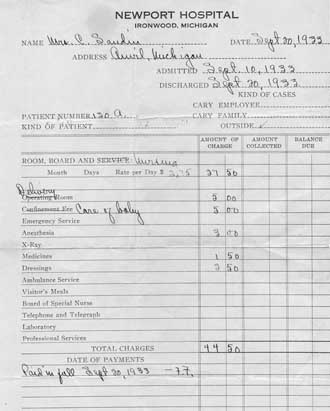 NEWPORT HOSPITAL
IRONWOOD, MICHIGAN
NAME Mrs. C. Sandin DATE Sept 20, 1933
ADDRESS Anvil, Michigan
ADMITTED Sept. 10, 1933
DISCHARGED Sept 20, 1933
KIND OF CASES
CARY EMPLOYEE
PATIENT NUMBER 130 A. CARY FAMILY
KIND OF PATIENT OUTSIDE ✓
AMOUNT OF CHARGE AMOUNT COLLECTED BALANCE DUE
ROOM, BOARD AND SERVICE: Nursing
Month Days Rate per Day $ 3.75 37 50
Delivery
Operating Room 5 00
Confinement Fee Care of baby 5 00
Emergency Service
Anesthesia 3 00
X-Ray
Medicines 1 50
Dressings 2 50
Ambulance Service
Visitor's Meals
Board of Special Nurse
Telephone and Telegraph
Laboratory
Professional Services
TOTAL CHARGES 44 50
DATE OF PAYMENTS
Paid in full Sept 20, 1933